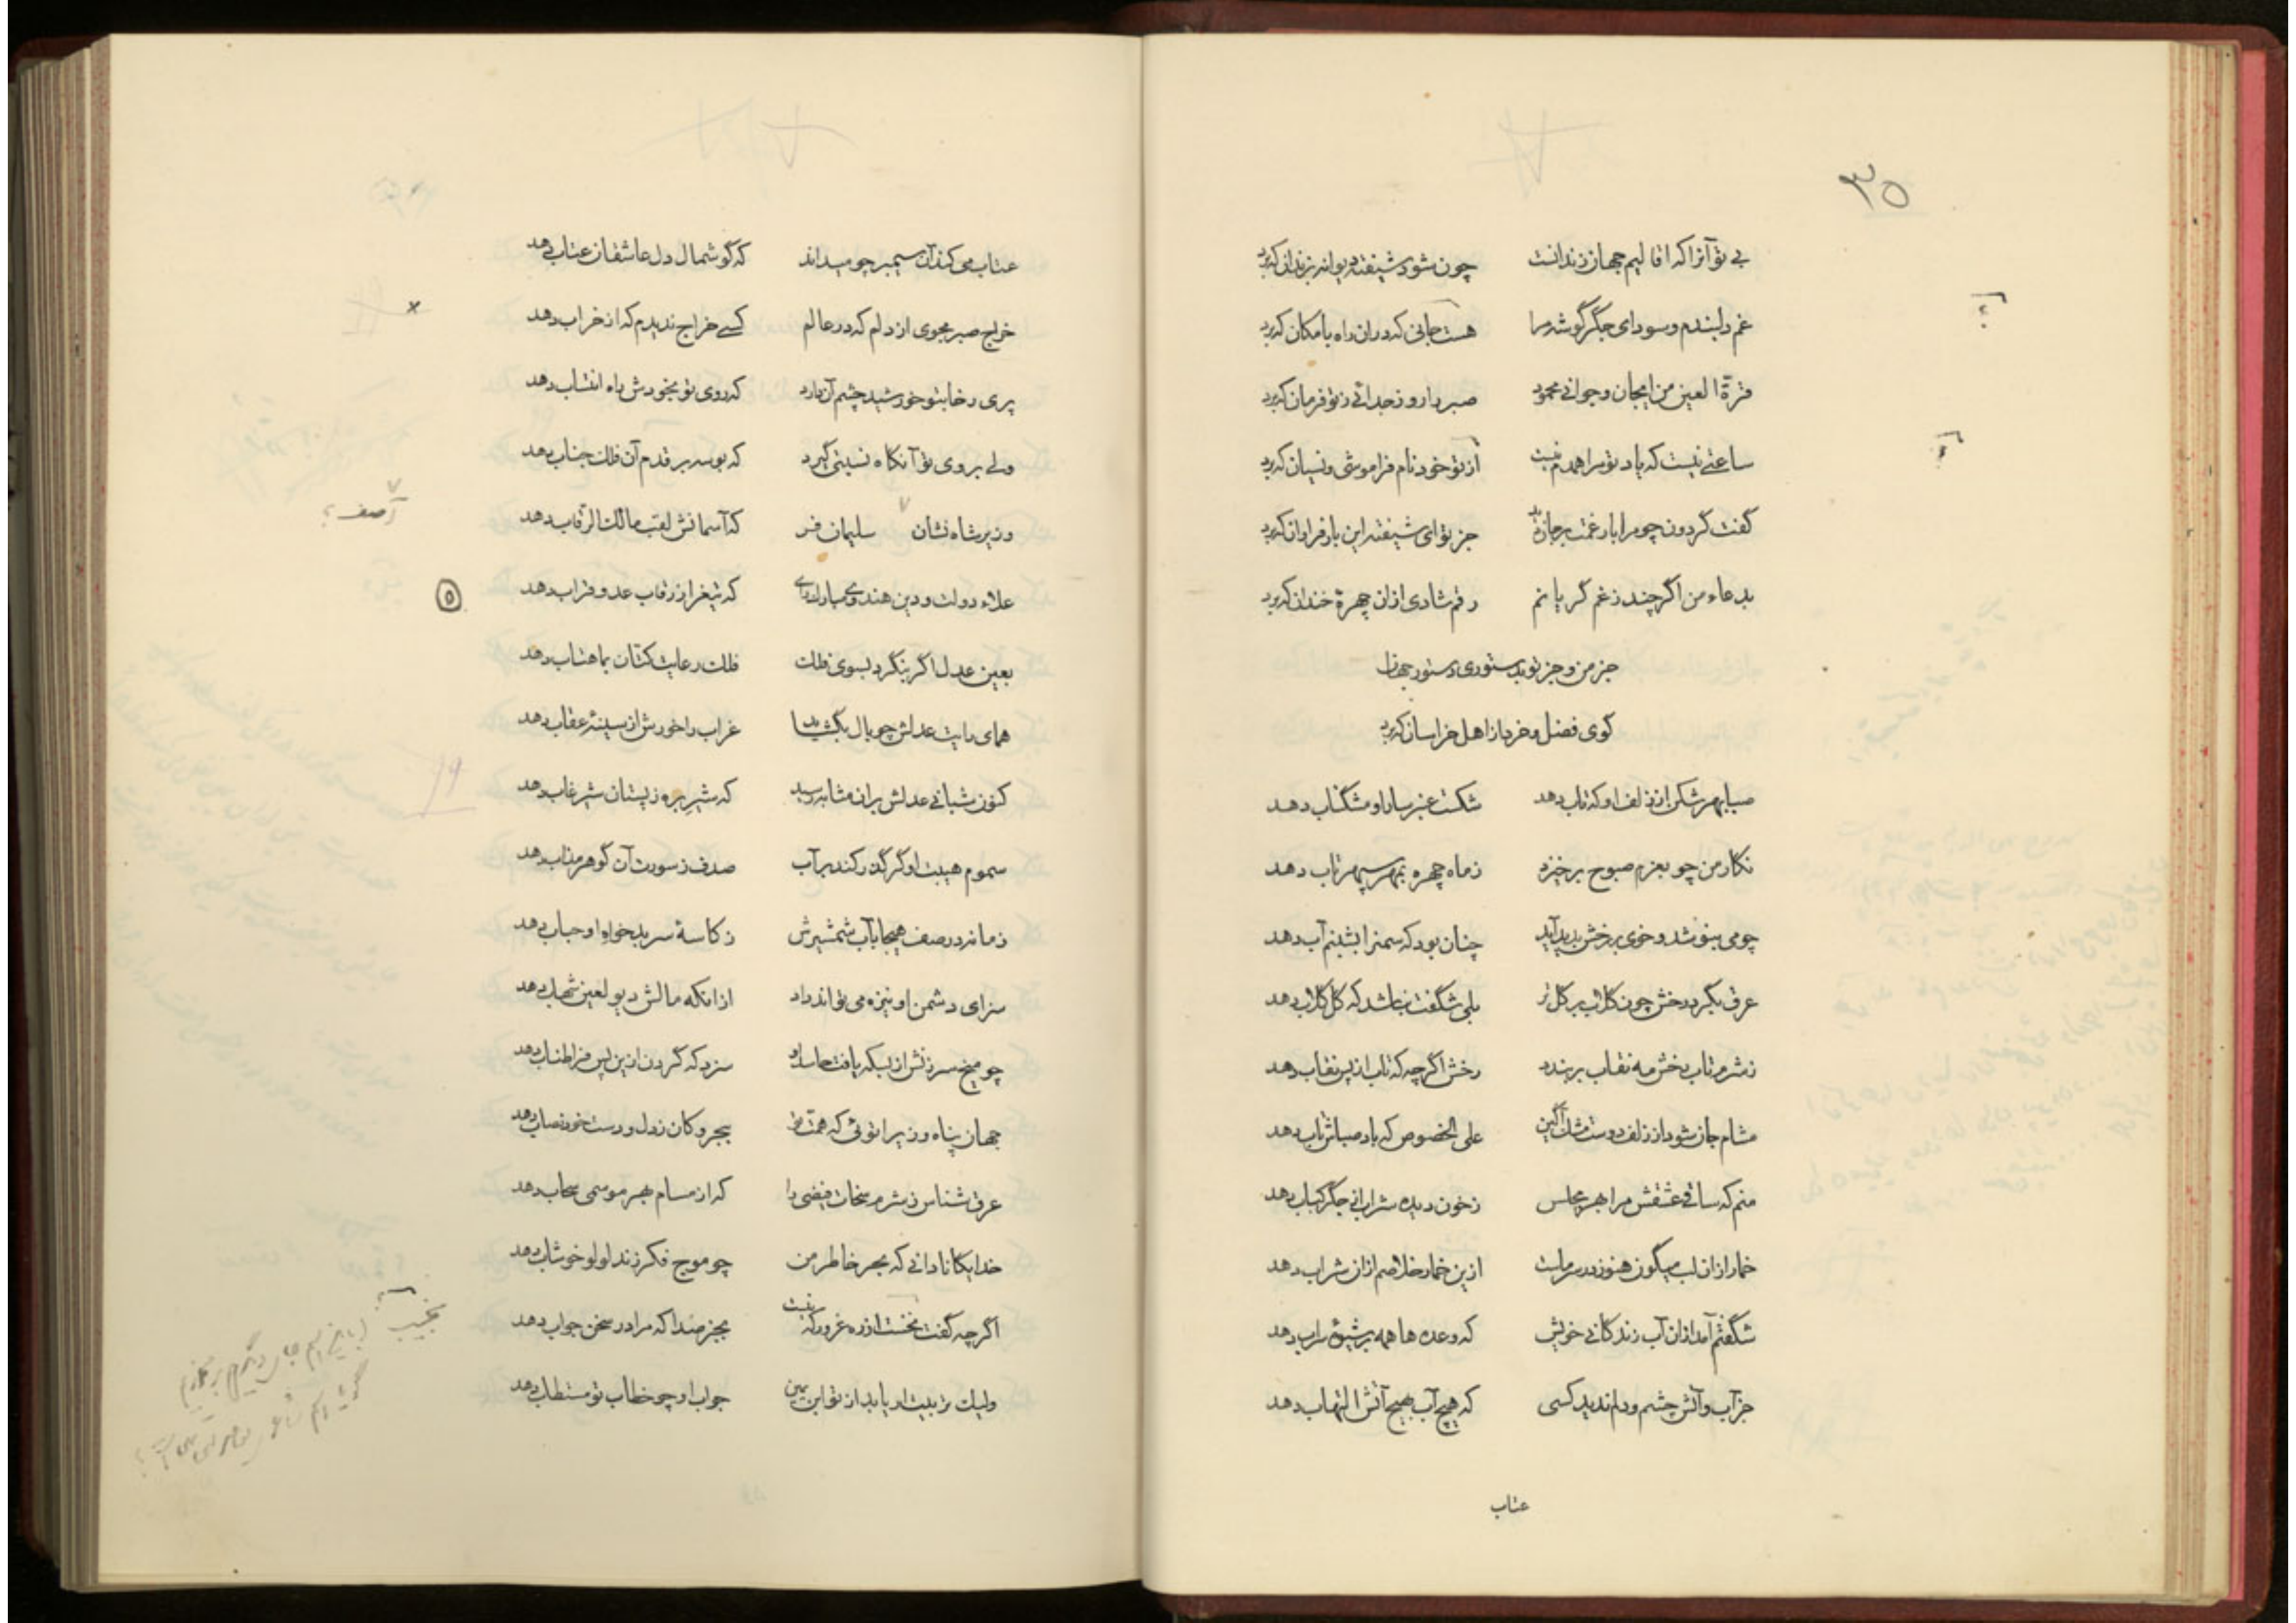 ۳۵
بی تو آنرا که اقالیم جهان زندانست چون شود شیفته دیوانه بزندان که برد
غم دلبندم و سودای جگرگوشه مرا هست جانی که دران راه بامکان که برد
قرة العین من ایجان و جوانی محمود صبر دارو ز جدائی ز تو فرمان که برد
ساعتی نیست که یاد تو مرا همدم نیست از تو خود نام فراموشی و نسیان که برد
گفت گردون چو مرا بار غمت بر جان جز تو ای شیفته این بار فراوان که برد
بدعاء من اگر چند ز غم گریانم رقم شادی ازان چهرهٔ خندان که برد
جز من و جز تو بدستوری دستور جهان
گوی فضل و خرد از اهل خراسان که برد
صبا بهر شکن از زلف او که تاب دهد شکست عنبر سارا و مشگناب دهد
نگار من چو بعزم صبوح برخیزد ز ماه چهره بمهر سپهر تاب دهد
چو می بنوشد و خوی بر رخش پدید آید چنان بود که سمنرا بشبنم آب دهد
عرق بگرد رخش چون گلاب بر گل تر بلی شگفت نباشد که گل گلاب دهد
ز شرم تاب رخش مه نقاب بربندد رخش اگرچه که تاب از پس نقاب دهد
مشام جان شود از زلف دوست مشگ آگین علی الخصوص که باد صباش تاب دهد
منم که ساقی عشقش مرا بهر مجلس ز خون دیده شراب از جگر کباب دهد
خمار ازان لب میگون هنوز در سر ماست ازین خمار خلاصم ازان شراب دهد
شگفتم آمد ازان آب زندگانی خویش که وعده ها همه بر شیوهٔ سراب دهد
جز آب و آتش چشم و دلم ندید کسی که هیچ آب بهیچ آتش التهاب دهد
عتاب
عتاب می کند آن سیمبر چو میداند که گوشمال دل عاشقان عتاب دهد
خراج صبر مجوی از دلم که در عالم کسی خراج ندیدم که از خراب دهد
پری رخا بتو خورشید چشم آن دارد که روی تو بخودش راه انتساب دهد
ولی بروی تو آنگاه نسبتی گیرد که بوسه بر قدم آن فلک جناب دهد
وزیر شاه نشان سلیمان فر که آسمانش لقب مالک الرقاب دهد
آصف؟
علاء دولت و دین هندوی مبارک رای که تیغ را ز رقاب عدو قراب دهد
۵
بعین عدل اگر بنگرد بسوی فلک فلک رعایت کتان بماهتاب دهد
همای رایت عدلش چو بال بگشاید غراب را خورش از سینهٔ عقاب دهد
کنون شبانی عدلش بران مثابه رسید که شیر بره ز پستان شیر غاب دهد
سموم هیبت او گر گذر کند بر آب صدف ز سورت آن گوهر مذاب دهد
زمانه در صف هیجا بآب شمشیرش ز کاسهٔ سر بدخواه او حباب دهد
سزای دشمن او نیزه می تواند داد از انکه مالش دیو لعین شهاب دهد
چو میخ سرزنش از بسکه یافت حاسد او سزد که گردن ازین پس فرا طناب دهد
جهان پناه وزیرا توئی که همت تو ببحر و کان ز دل و دست خود نصاب دهد
عرق شناس ز شرم سخات فیضی را که از مسام بهر موسمی سحاب دهد
خدایگانا دانی که بحر خاطر من چو موج فکر زند لولو خوشاب دهد
اگرچه گفت نخست از ره غرور که نیست بجز صدا که مرا در سخن جواب دهد
نجیب
ولیک تربیت ار یابد از تو ابن یمین جواب او چو خطاب تو مستطاب دهد